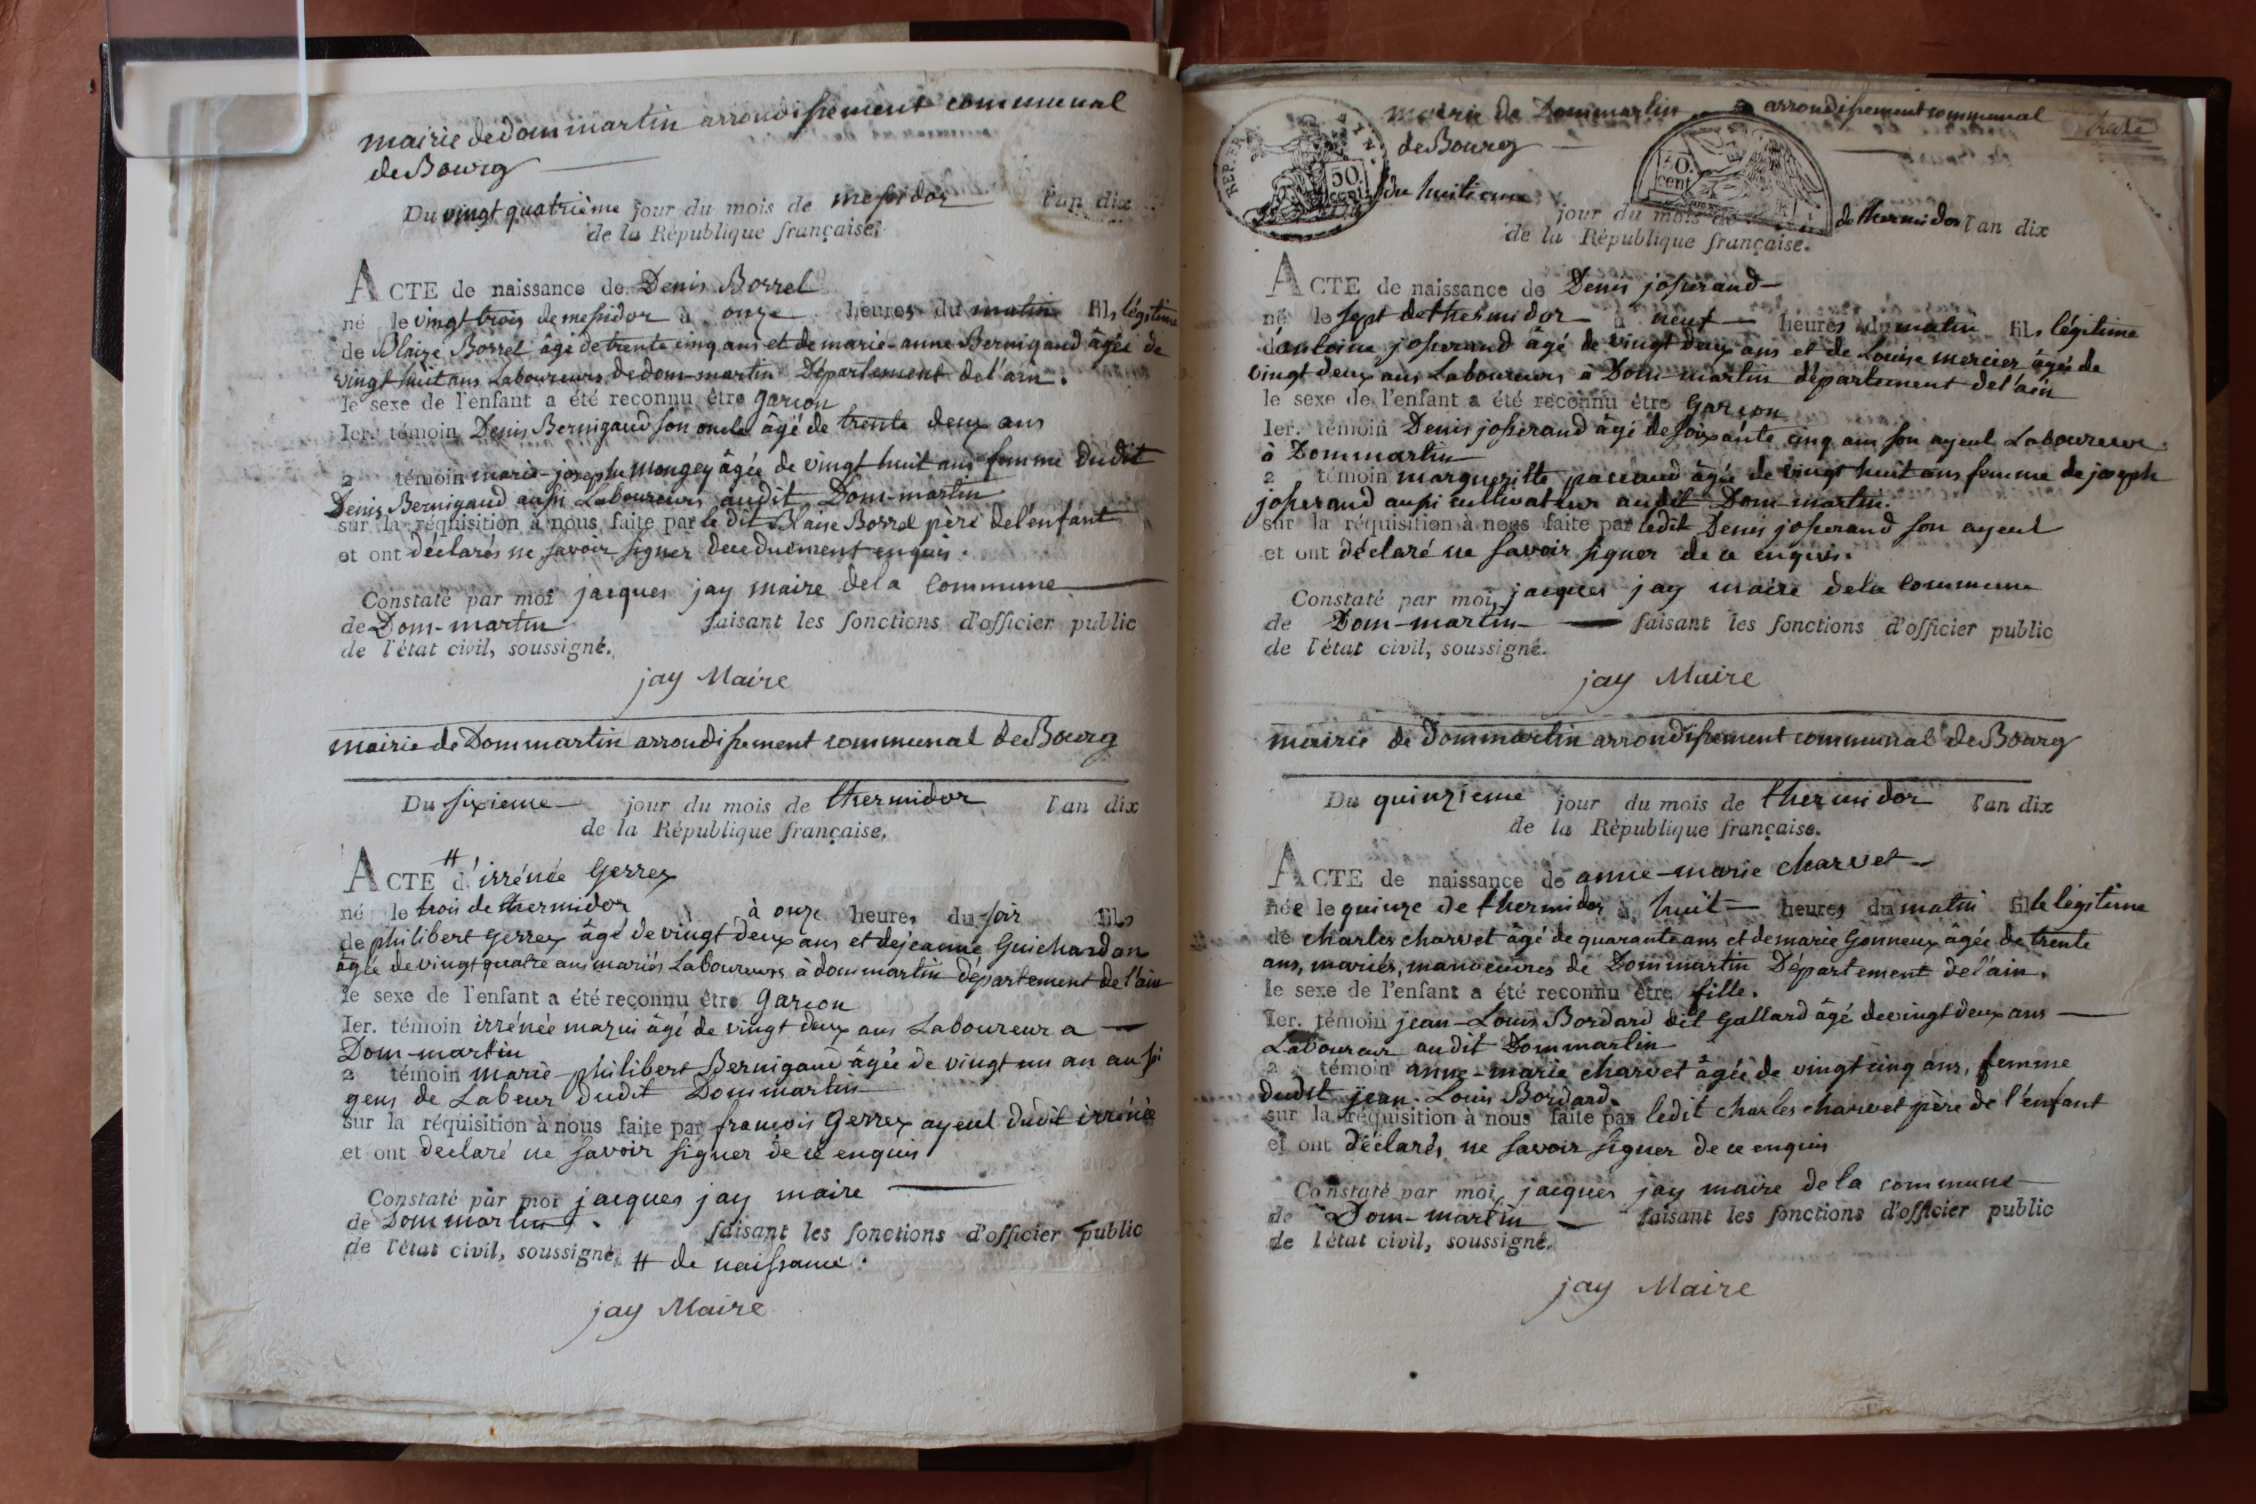 mairie de dommartin arrondissement communal
de Bourg
Du vingt quatrième jour du mois de messidor l'an dix
de la République française.
ACTE de naissance de Denis Borrel
né le vingt trois de messidor à onze heures du matin fils légitime
de Blaize Borrel âgé de trente cinq ans et de marie-anne Bernigaud âgée de
vingt huit ans Laboureurs de dom-martin Département de l'ain.
le sexe de l'enfant a été reconnu être garçon
Ier. témoin Denis Bernigaud son oncle âgé de trente deux ans
2 témoin marie-josephe Mongey âgée de vingt huit ans femme dudit
Denis Bernigaud aussi Laboureurs audit Dom-martin
sur la réquisition à nous faite par le dit Blaise Borrel père de l'enfant
et ont déclarés ne savoir signer de ce duement enquis.
Constaté par moi jacques jay maire de la Commune
de Dom-martin faisant les fonctions d'officier public
de l'état civil, soussigné.
jay Maire
mairie de Dommartin arrondissement communal de Bourg
Du sixieme jour du mois de thermidor l'an dix
de la République française.
ACTE # d'irrénée Gerrex
né le trois de thermidor à onze heures du soir fils
de philibert Gerrex âgé de vingt deux ans et de jeanne Guichardon
âgée de vingt quatre ans mariés Laboureurs à dommartin département de l'ain
le sexe de l'enfant a été reconnu être garçon
Ier. témoin irrénée mazui âgé de vingt deux ans Laboureur a
Dom-martin
2 témoin marie philibert Bernigaud âgée de vingt un an aussi
gens de Labeur dudit Dommartin
sur la réquisition à nous faite par françois Gerrex ayeul dudit irrénée
et ont declaré ne savoir signer de ce enquis
Constaté par moi jacques jay maire
de Dommartin. faisant les fonctions d'officier public
de l'état civil, soussigné, # de naissance.
jay Maire
mairie de Dommartin arrondissement communal
de Bourg
REP. FRA
50. cent.
50. cent
du huitieme jour du mois de de thermidor l'an dix
de la République française.
ACTE de naissance de Denis josserand
né le sept de thermidor à neuf heures du matin fils légitime
d'antoine josserand âgé de vingt deux ans et de Louise mercier âgée de
vingt deux ans Laboureurs à Dom-martin département de l'ain
le sexe de l'enfant a été reconnu être garçon
Ier. témoin Denis josserand âgé de soixante cinq ans son ayeul Laboureur
à Dommartin
2 témoin margueritte paccaud âgée de vingt huit ans femme de joseph
josserand aussi cultivateur audit Dom-martin.
sur la réquisition à nous faite par ledit Denis josserand son ayeul
et ont déclaré ne savoir signer de ce enquis.
Constaté par moi, jacques jay maire de la Commune
de Dom-martin faisant les fonctions d'officier public
de l'état civil, soussigné.
jay Maire
mairie de dommartin arrondissement communal de Bourg
Du quinzieme jour du mois de thermidor l'an dix
de la République française.
ACTE de naissance de anne-marie charvet
née le quinze de thermidor à huit heures du matin fille légitime
de charles charvet âgé de quarante ans et de marie Gonneux âgée de trente
ans, mariés, manoeuvres de Dommartin Département de l'ain.
le sexe de l'enfant a été reconnu être fille.
Ier. témoin jean-Louis Bordard dit Gallard âgé de vingt deux ans
Laboureur audit Dommartin
2 témoin anne-marie charvet âgée de vingt cinq ans, femme
dudit jean-Louis Bordard.
sur la réquisition à nous faite par ledit charles charvet père de l'enfant
et ont déclarés, ne savoir signer de ce enquis
Constaté par moi, jacques jay maire de la commune
de Dom-martin faisant les fonctions d'officier public
de l'état civil, soussigné.
jay Maire